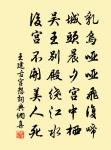 乳烏啞啞飛復啼
城頭晨夕宮中棲
吳王別殿繞江水
後宮不開美人死
王建古宮怨詞典網書